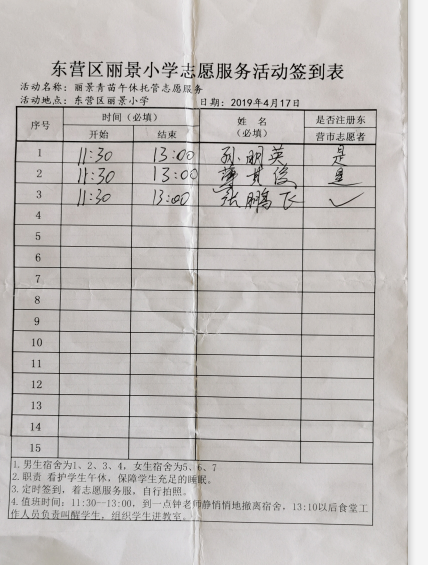 东营区丽景小学志愿服务活动签到表
活动名称：丽景青苗午休托管志愿服务
活动地点：东营区丽景小学 日期：2019年4月17日
序号 时间（必填） 姓名（必填） 是否注册东营市志愿者
开始 结束
1 11:30 13:00 孙明英 是
2 11:30 13:00 其俊 是
3 11:30 13:00 张鹏飞 ✓
4
5
6
7
8
9
10
11
12
13
14
15
1.男生宿舍为1、2、3、4，女生宿舍为5、6、7
2.职责 看护学生午休，保障学生充足的睡眠。
3.定时签到，着志愿服务服，自行拍照。
4.值班时间：11:30—13:00，到一点钟老师静悄悄地撤离宿舍，13:10以后食堂工
作人员负责叫醒学生，组织学生进教室。